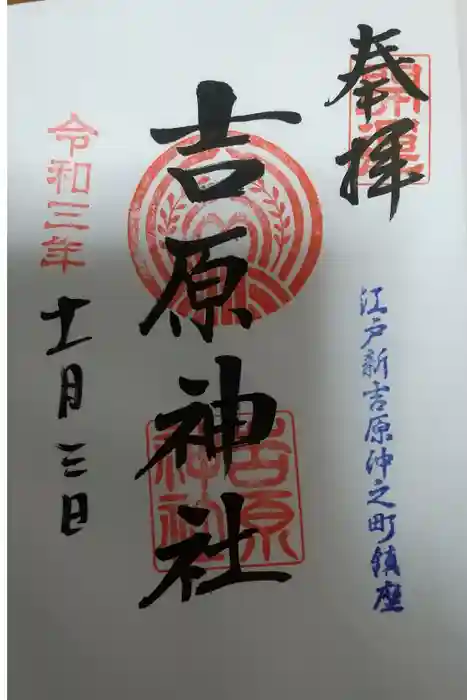 奉拝
開運
江戸新吉原仲之町鎮座
吉原神社
吉原神社
令和三年
十一月三日